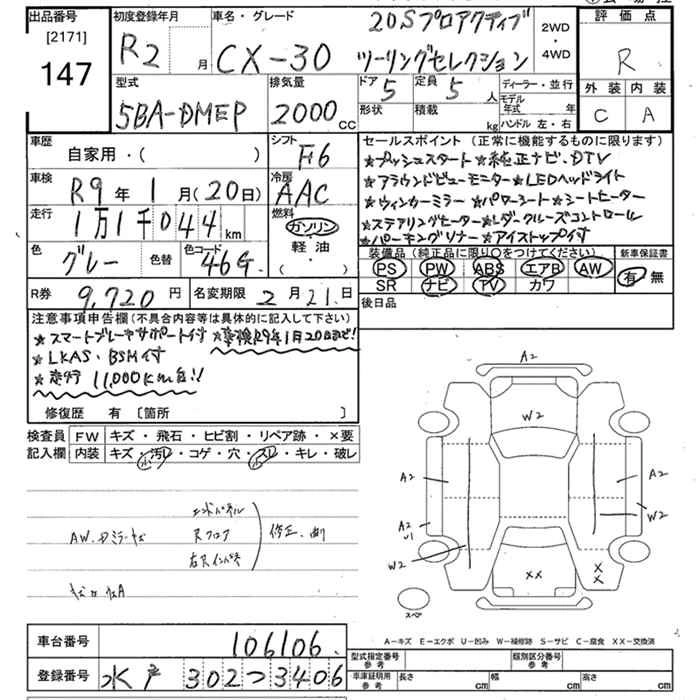 出品番号 初度登録年月 車名・グレード 評価点
[2171] R2 月 CX-30 20Sプロアクティブ 2WD R
147 ツーリングセレクション 4WD
型式 排気量 ドア 定員 ディーラー・並行 外装 内装
5BA-DMEP 2000 CC 5 5 人 モデル年式 年 C A
形状 積載 kg ハンドル 左・右
車歴 シフト セールスポイント (正常に機能するものに限ります)
自家用・( ) F6 ★プッシュスタート★純正ナビ.DTV
車検 冷房 ★アラウンドビューモニター★LEDヘッドライト
R9年 1月(20日) AAC ★ウィンカーミラー★パワーシート★シートヒーター
走行 燃料 ★ステアリングヒーター★レダークルーズコントロール
1万1千044km ガソリン ★パーキングソナー★アイストップ付
色 色替 色コード 軽油 装備品(純正品に限り○をつけてください) 新車保証書
グレー 46G ・( ) PS PW ABS エアB AW 有 無
SR ナビ TV カワ
R券 9,720円 名変期限 2月21日 後日品
注意事項申告欄(不具合内容等は具体的に記入して下さい)
★スマートブレーキサポート付 ★車検R9年1月20日まで!
★LKAS、BSM付
★走行 11,000km台!!
修復歴 有 [箇所 ]
検査員 FW キズ・飛石・ヒビ割・リペア跡・×要
記入欄 内装 キズ・汚レ・コゲ・穴・スレ・キレ・破レ
小 小
A2
W2
A2 A2
A2 W2
U1
W2
XX X
X
スペア
エンドパネル
AW.Dミラーキズ Rフロア 修正.曲
右Rインパネ
車台番号 106106
登録番号 水戸 302つ3406
A-キズ E-エクボ U-凹み W-補修跡 S-サビ C-腐食 XX-交換済
型式指定番号 参考 類別区分番号 参考
車庫証明用 参考 長さ cm 幅 cm 高さ cm